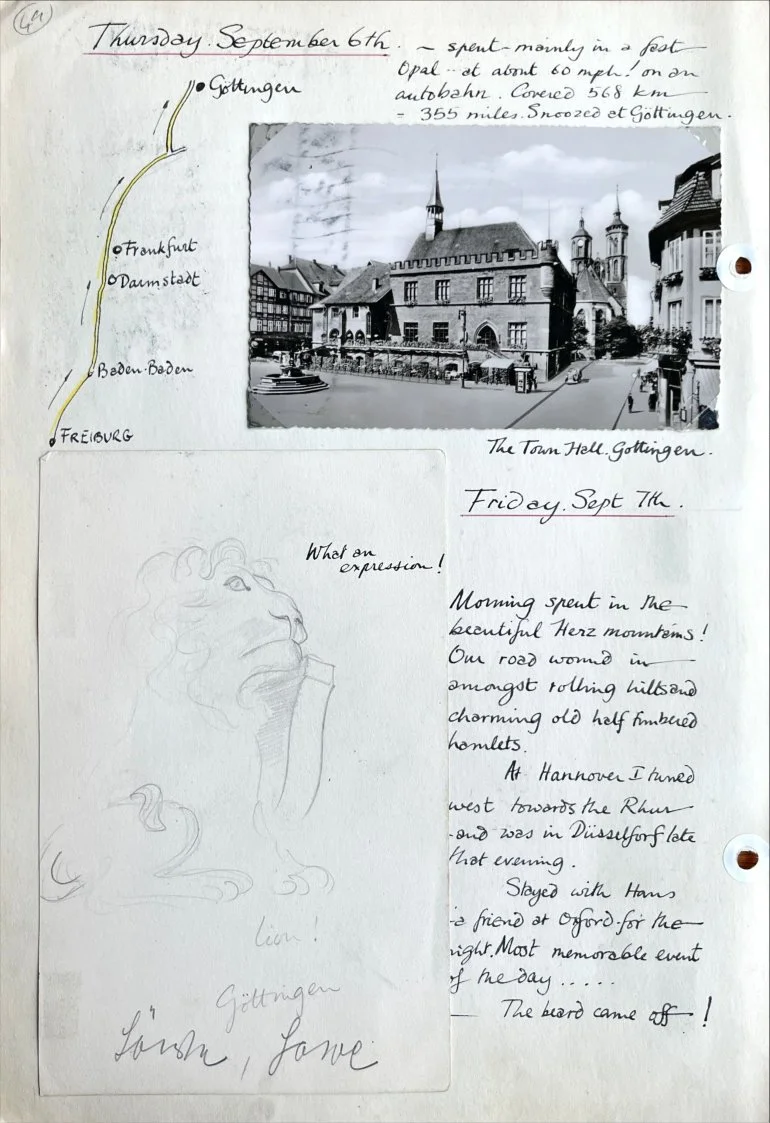 Thursday. September 6th. – spent mainly in a fast
Opal -- at about 60 mph! on an
autobahn. Covered 568 km
= 355 miles. Snoozed at Göttingen.
Göttingen
Frankfurt
Darmstadt
Baden-Baden
FREIBURG
The Town Hall. Gottingen.
Friday. Sept 7th.
What an
expression!
Morning spent in the
beautiful Herz mountains!
Our road wound in
amongst rolling hills and
charming old half timbered
hamlets.
At Hannover I turned
west towards the Rhur
and was in Düsselforf late
that evening.
Stayed with Hans
- a friend at Oxford - for the
night. Most memorable event
of the day .....
— The beard came off!
Lion!
Göttingen